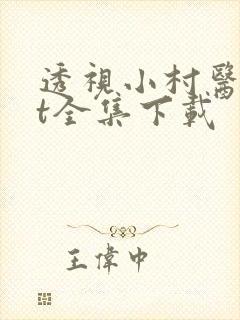 透視小村醫
t全集下載
王偉中